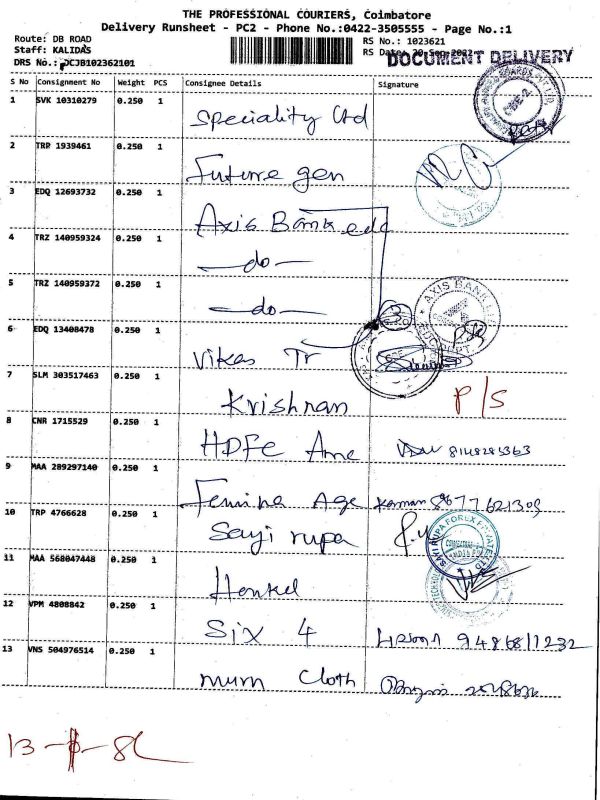 THE PROFESSIONAL COURIERS, Coimbatore
Delivery Runsheet - PC2 - Phone No.:0422-3505555 - Page No.:1
Route: DB ROAD
RS No.: 1023621
Staff: KALIDAS
RS Date: 20 Sep 2022
DOCUMENT DELIVERY
DRS No.: DCJB102362101
S No Consignment No Weight PCS Consignee Details Signature
1 SVK 10310279 0.250 1 Speciality Ltd
2 TRP 1939461 0.250 1 Future gen
3 EDQ 12693732 0.250 1 Axis Bank edc
4 TRZ 140959324 0.250 1 -do-
5 TRZ 140959372 0.250 1 -do-
AXIS BANK
6 EDQ 13408478 0.250 1 Vikas Tr
7 SLM 303517463 0.250 1 Krishnan P/S
8 CNR 1715529 0.250 1 HDFC Amc 8148285363
9 MAA 289297140 0.250 1 Femina Age
10 TRP 4766628 0.250 1 Sayi rupa
SAYI RUPA FOREX PRIVATE LTD
11 MAA 568047448 0.250 1 Henkel
12 VPM 4808842 0.250 1 Six 4
13 VNS 504976514 0.250 1 mum Cloth